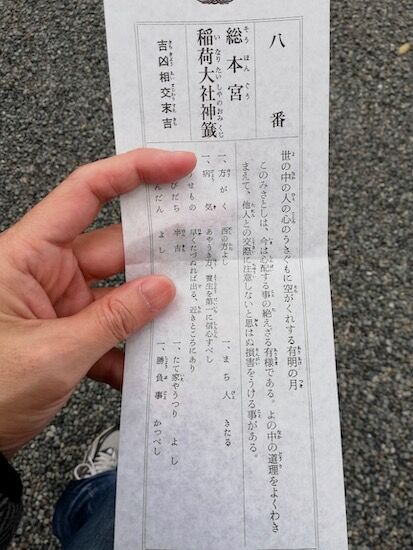 八番
そうほんぐう
総本宮
いなりたいしやのおみくじ
稲荷大社神籤
吉凶相交末吉
世の中の人の心のうきぐもに空がくれする有明の月
このみさとしは、今は心配する事の絶えざる有様である。よの中の道理をよくわき
まえて、他人との交際に注意しないと思はぬ損害をうける事がある。
一、方がく 西の方よし 一、まち人 きたる
一、病気 あやうき方、養生を第一に信心すべし
せもの 早くたづぬれば出る、近きところにあり
びだち 半吉 一、たて家やうつり よし
んだん よし 一、勝負事 かつべし